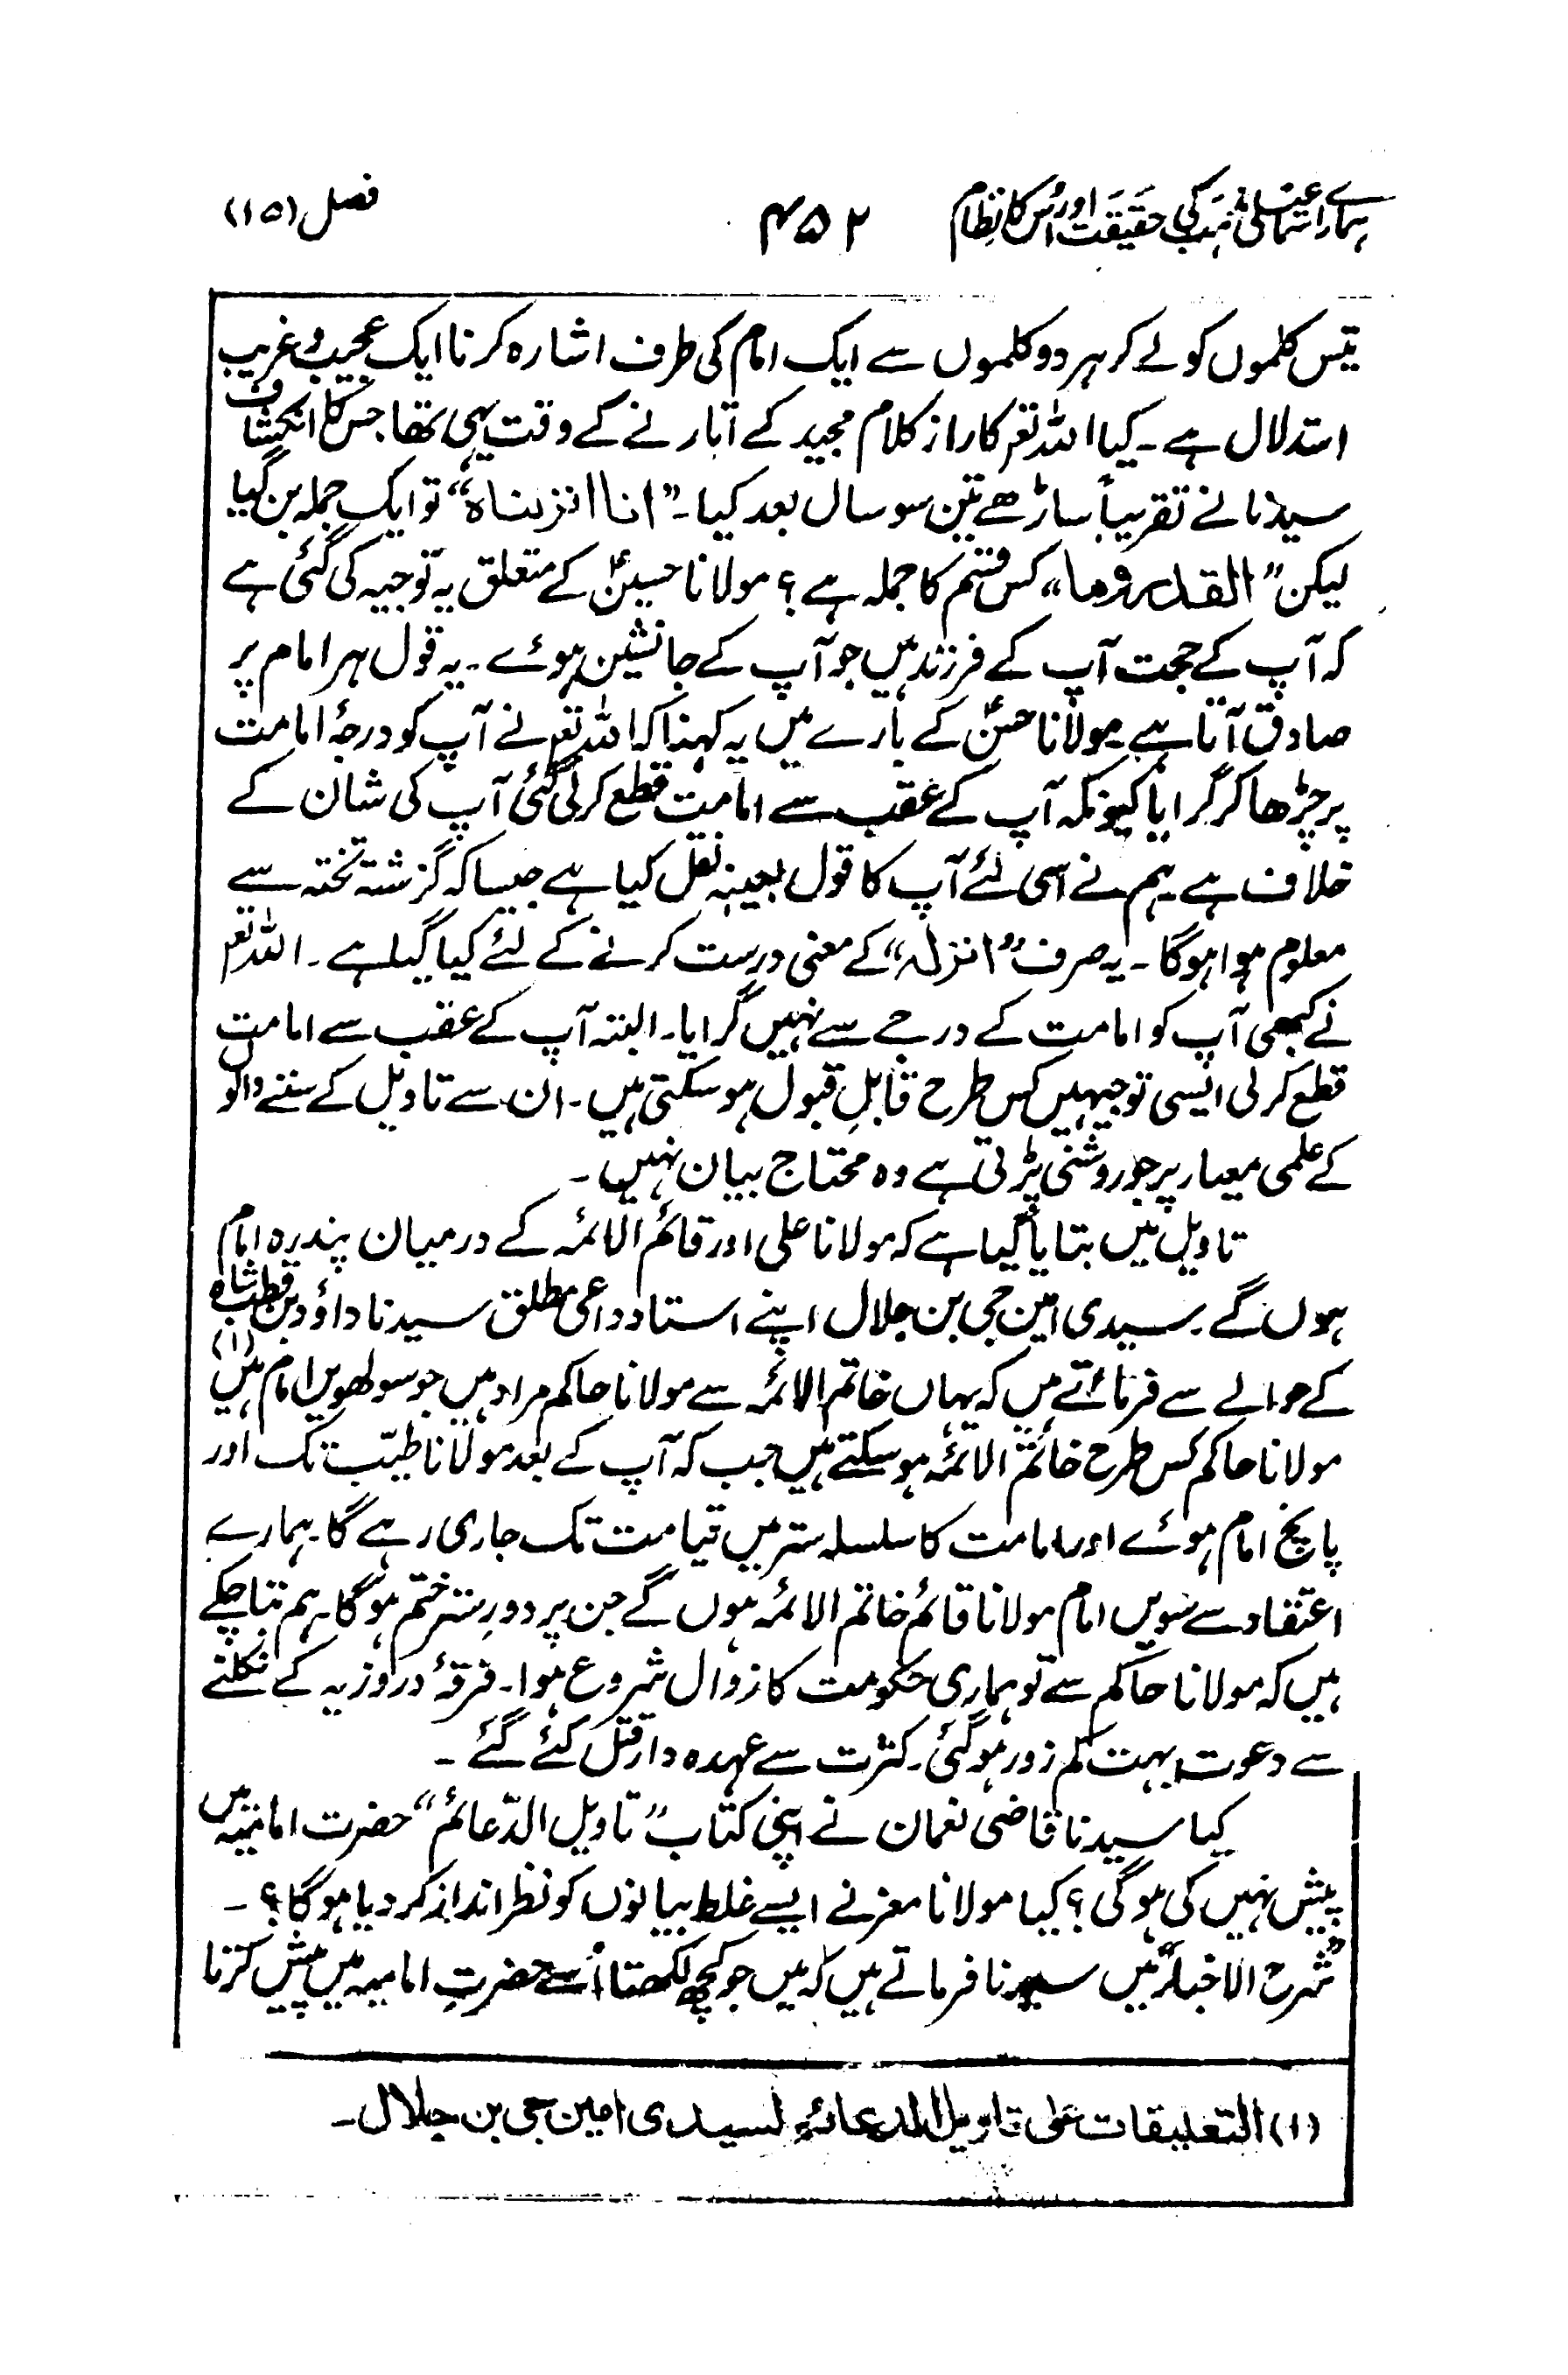 ہمارے اسماعیلی مذہب کی حقیقت اور اُس کا نظام ۴۵۲ فصل (۱۵)
تیس کلموں کو لے کر ہر دو کلموں سے ایک امام کی طرف اشارہ کرنا ایک عجیب و غریب
استدلال ہے۔ کیا اللہ تعم کا راز کلام مجید کے اتارنے کے وقت یہی تھا جس کا انکشاف
سیدنا نے تقریباً ساڑھے تین سو سال بعد کیا۔ ”انا انزلناہ“ تو ایک جملہ بن گیا
لیکن ”القدر وما“ کس قسم کا جملہ ہے؟ مولانا حسینؑ کے متعلق یہ توجیہ کی گئی ہے
کہ آپ کے حجت آپ کے فرزند ہیں جو آپ کے جانشین ہوئے۔ یہ قول ہر امام پر
صادق آتا ہے۔ مولانا حسنؑ کے بارے میں یہ کہنا کہ اللہ تعم نے آپ کو درجۂ امامت
پر چڑھا کر گرایا کیونکہ آپ کے عقب سے امامت قطع کرلی گئی آپ کی شان کے
خلاف ہے۔ ہم نے اسی لئے آپ کا قول بعینہٖ نقل کیا ہے جیسا کہ گزشتہ تختہ سے
معلوم ہوا ہوگا۔ یہ صرف ”انزلہ“ کے معنی درست کرنے کے لئے کیا گیا ہے۔ اللہ تعم
نے کبھی آپ کو امامت کے درجے سے نہیں گرایا۔ البتہ آپ کے عقب سے امامت
قطع کرلی ایسی توجیہیں کس طرح قابلِ قبول ہوسکتی ہیں۔ ان سے تاویل کے سننے والوں
کے علمی معیار پر جو روشنی پڑتی ہے وہ محتاج بیان نہیں۔
تاویل میں بتایا گیا ہے کہ مولانا علی اور قائم الائمہ کے درمیان پندرہ امام
ہوں گے۔ سیدی امین جی بن جلال اپنے استاد داعی مطلق سیدنا داؤد بن قطب شاہ
کے حوالے سے فرماتے ہیں کہ یہاں خاتم الائمہ سے مولانا حاکم مراد ہیں جو سولھویں امام ہیں (۱)
مولانا حاکم کس طرح خاتم الائمہ ہوسکتے ہیں جب کہ آپ کے بعد مولانا طیّب تک اور
پانچ امام ہوئے اور امامت کا سلسلہ ستر میں قیامت تک جاری رہے گا۔ ہمارے
اعتقاد سے سویں امام مولانا قائم خاتم الائمہ ہوں گے جن پر دورِ ستر ختم ہوگا۔ ہم بتا چکے
ہیں کہ مولانا حاکم سے تو ہماری حکومت کا زوال شروع ہوا۔ فرقۂ دروزیہ کے نکلنے
سے دعوت بہت کم زور ہوگئی۔ کثرت سے عہدہ دار قتل کئے گئے۔
کیا سیدنا قاضی نعمان نے اپنی کتاب ”تاویل الدّعائم“ حضرت امامیّہ میں
پیش نہیں کی ہوگی؟ کیا مولانا معز نے ایسے غلط بیانوں کو نظر انداز کر دیا ہوگا؟۔
”شرح الاخبار“ میں سیدنا فرماتے ہیں کہ میں جو کچھ لکھتا اُسے حضرتِ امامیہ میں پیش کرتا
(۱) التعلیقات علی تاویل الدعائم لسیدی امین جی بن جلال۔